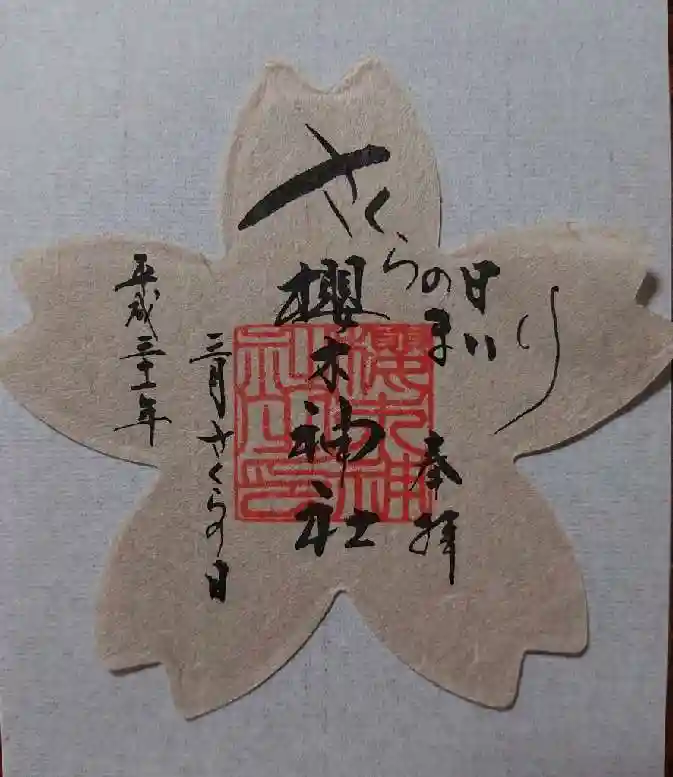 さくらの日まいり
奉拝
櫻木神社
櫻木神
社之印
三月さくらの日
平成三十一年